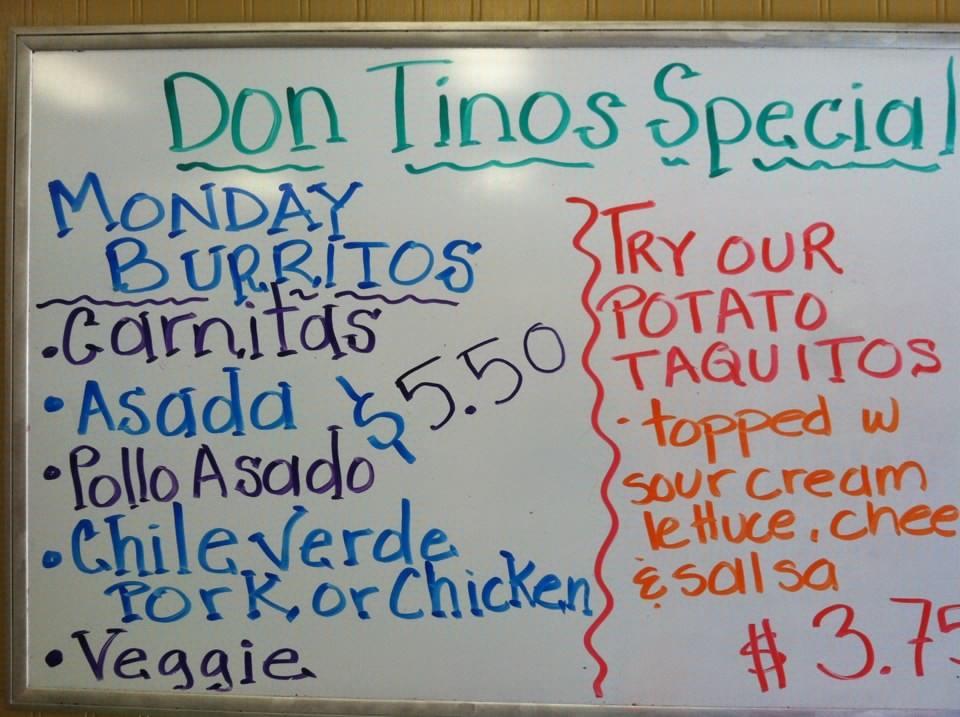 Don Tinos Special
MONDAY
BURRITOS
• Carnitas
• Asada $5.50
• Pollo Asado
• Chile Verde
Pork, or Chicken
• Veggie
TRY OUR
POTATO
TAQUITOS
• topped w
sour cream
lettuce, chee
& salsa
$3.75